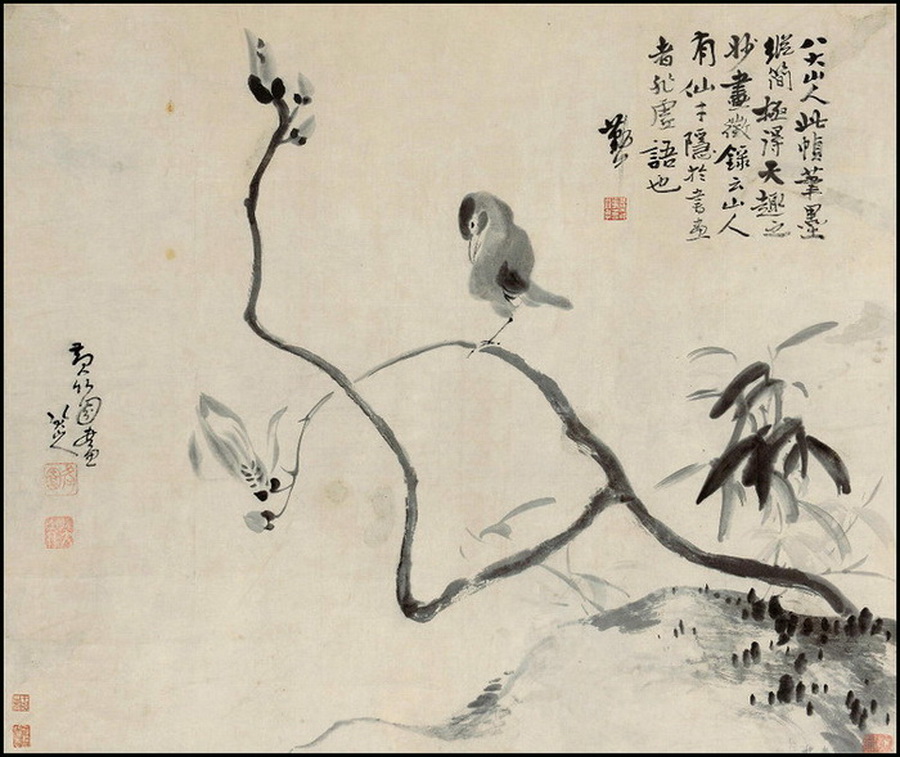 八大山人此幀筆墨
縱簡極得天趣之
妙畫徵錄云山人
有仙才隱於書畫
者非虛語也
黃竹園畫
八大山人